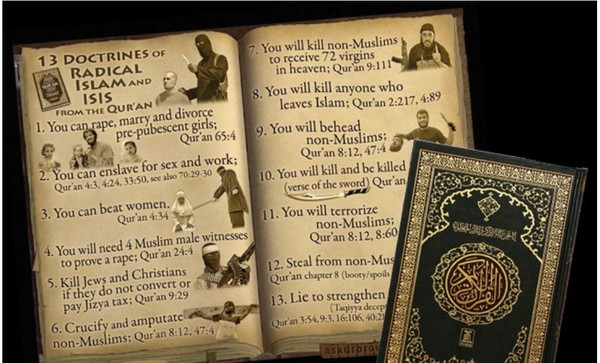 13 DOCTRINES OF
RADICAL
ISLAM AND
ISIS
FROM THE QUR'AN
1. You can rape, marry and divorce
pre-pubescent girls;
Qur'an 65:4
2. You can enslave for sex and work;
Qur'an 4:3, 4:24, 33:50, see also 70:29-30
3. You can beat women.
Qur'an 4:34
4. You will need 4 Muslim male witnesses
to prove a rape; Qur'an 24:4
5. Kill Jews and Christians
if they do not convert or
pay Jizya tax; Qur'an 9:29
6. Crucify and amputate
non-Muslims; Qur'an 8:12, 47:4
7. You will kill non-Muslims
to receive 72 virgins
in heaven; Qur'an 9:111
8. You will kill anyone who
leaves Islam; Qur'an 2:217, 4:89
9. You will behead
non-Muslims;
Qur'an 8:12, 47:4
10. You will kill and be killed
(verse of the sword) Qur'an
11. You will terrorize
non-Muslims;
Qur'an 8:12, 8:60
12. Steal from non-Mus
Qur'an chapter 8 (booty/spoils
13. Lie to strengthen
(Taqiyya decep
Qur'an 3:54, 9:3, 16:106, 40:28
askdrbro
القرآن الكريم